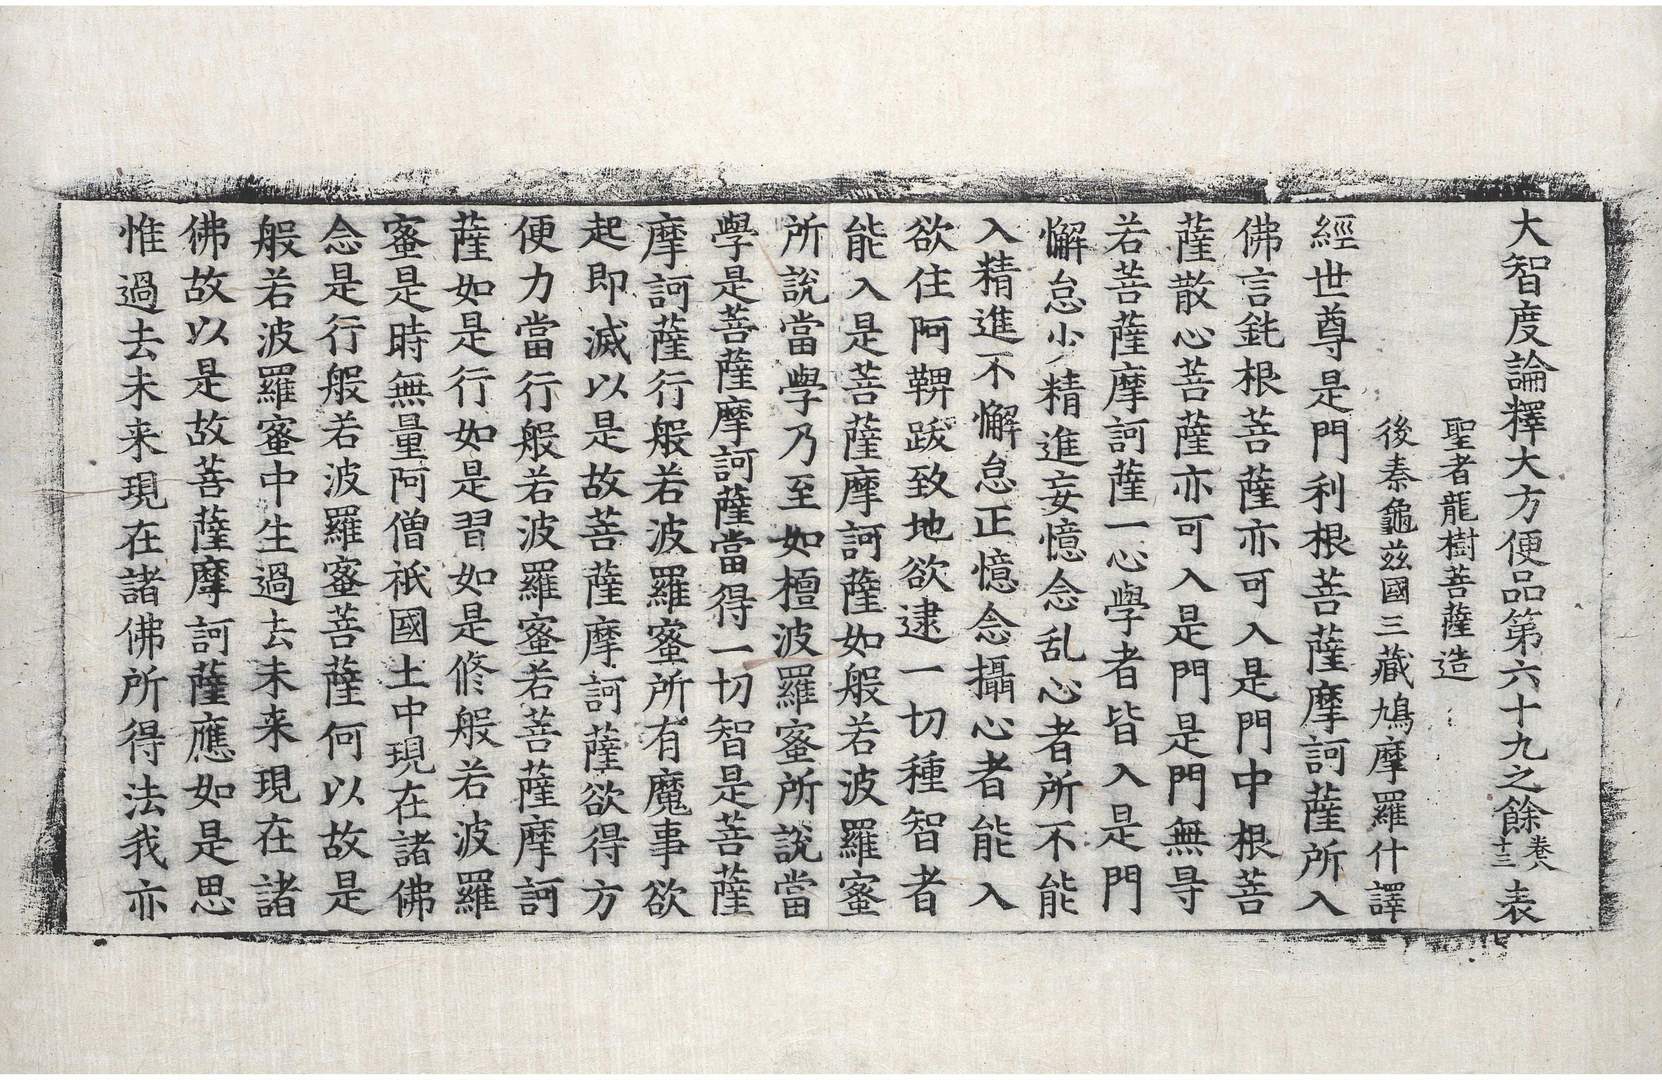 大智度論釋大方便品第六十九之餘卷八十三 表
聖者龍樹菩薩造
後秦龜玆國三藏鳩摩羅什譯
經世尊是門利根菩薩摩訶薩所入
佛言鈍根菩薩亦可入是門中根菩
薩散心菩薩亦可入是門是門無㝵
若菩薩摩訶薩一心學者皆入是門
懈怠少精進妄憶念乱心者所不能
入精進不懈怠正憶念攝心者能入
欲住阿鞞跋致地欲逮一切種智者
能入是菩薩摩訶薩如般若波羅蜜
所說當學乃至如檀波羅蜜所說當
學是菩薩摩訶薩當得一切智是菩薩
摩訶薩行般若波羅蜜所有魔事欲
起即滅以是故菩薩摩訶薩欲得方
便力當行般若波羅蜜若菩薩摩訶
薩如是行如是習如是修般若波羅
蜜是時無量阿僧祇國土中現在諸佛
念是行般若波羅蜜菩薩何以故是
般若波羅蜜中生過去未来現在諸
佛故以是故菩薩摩訶薩應如是思
惟過去未来現在諸佛所得法我亦